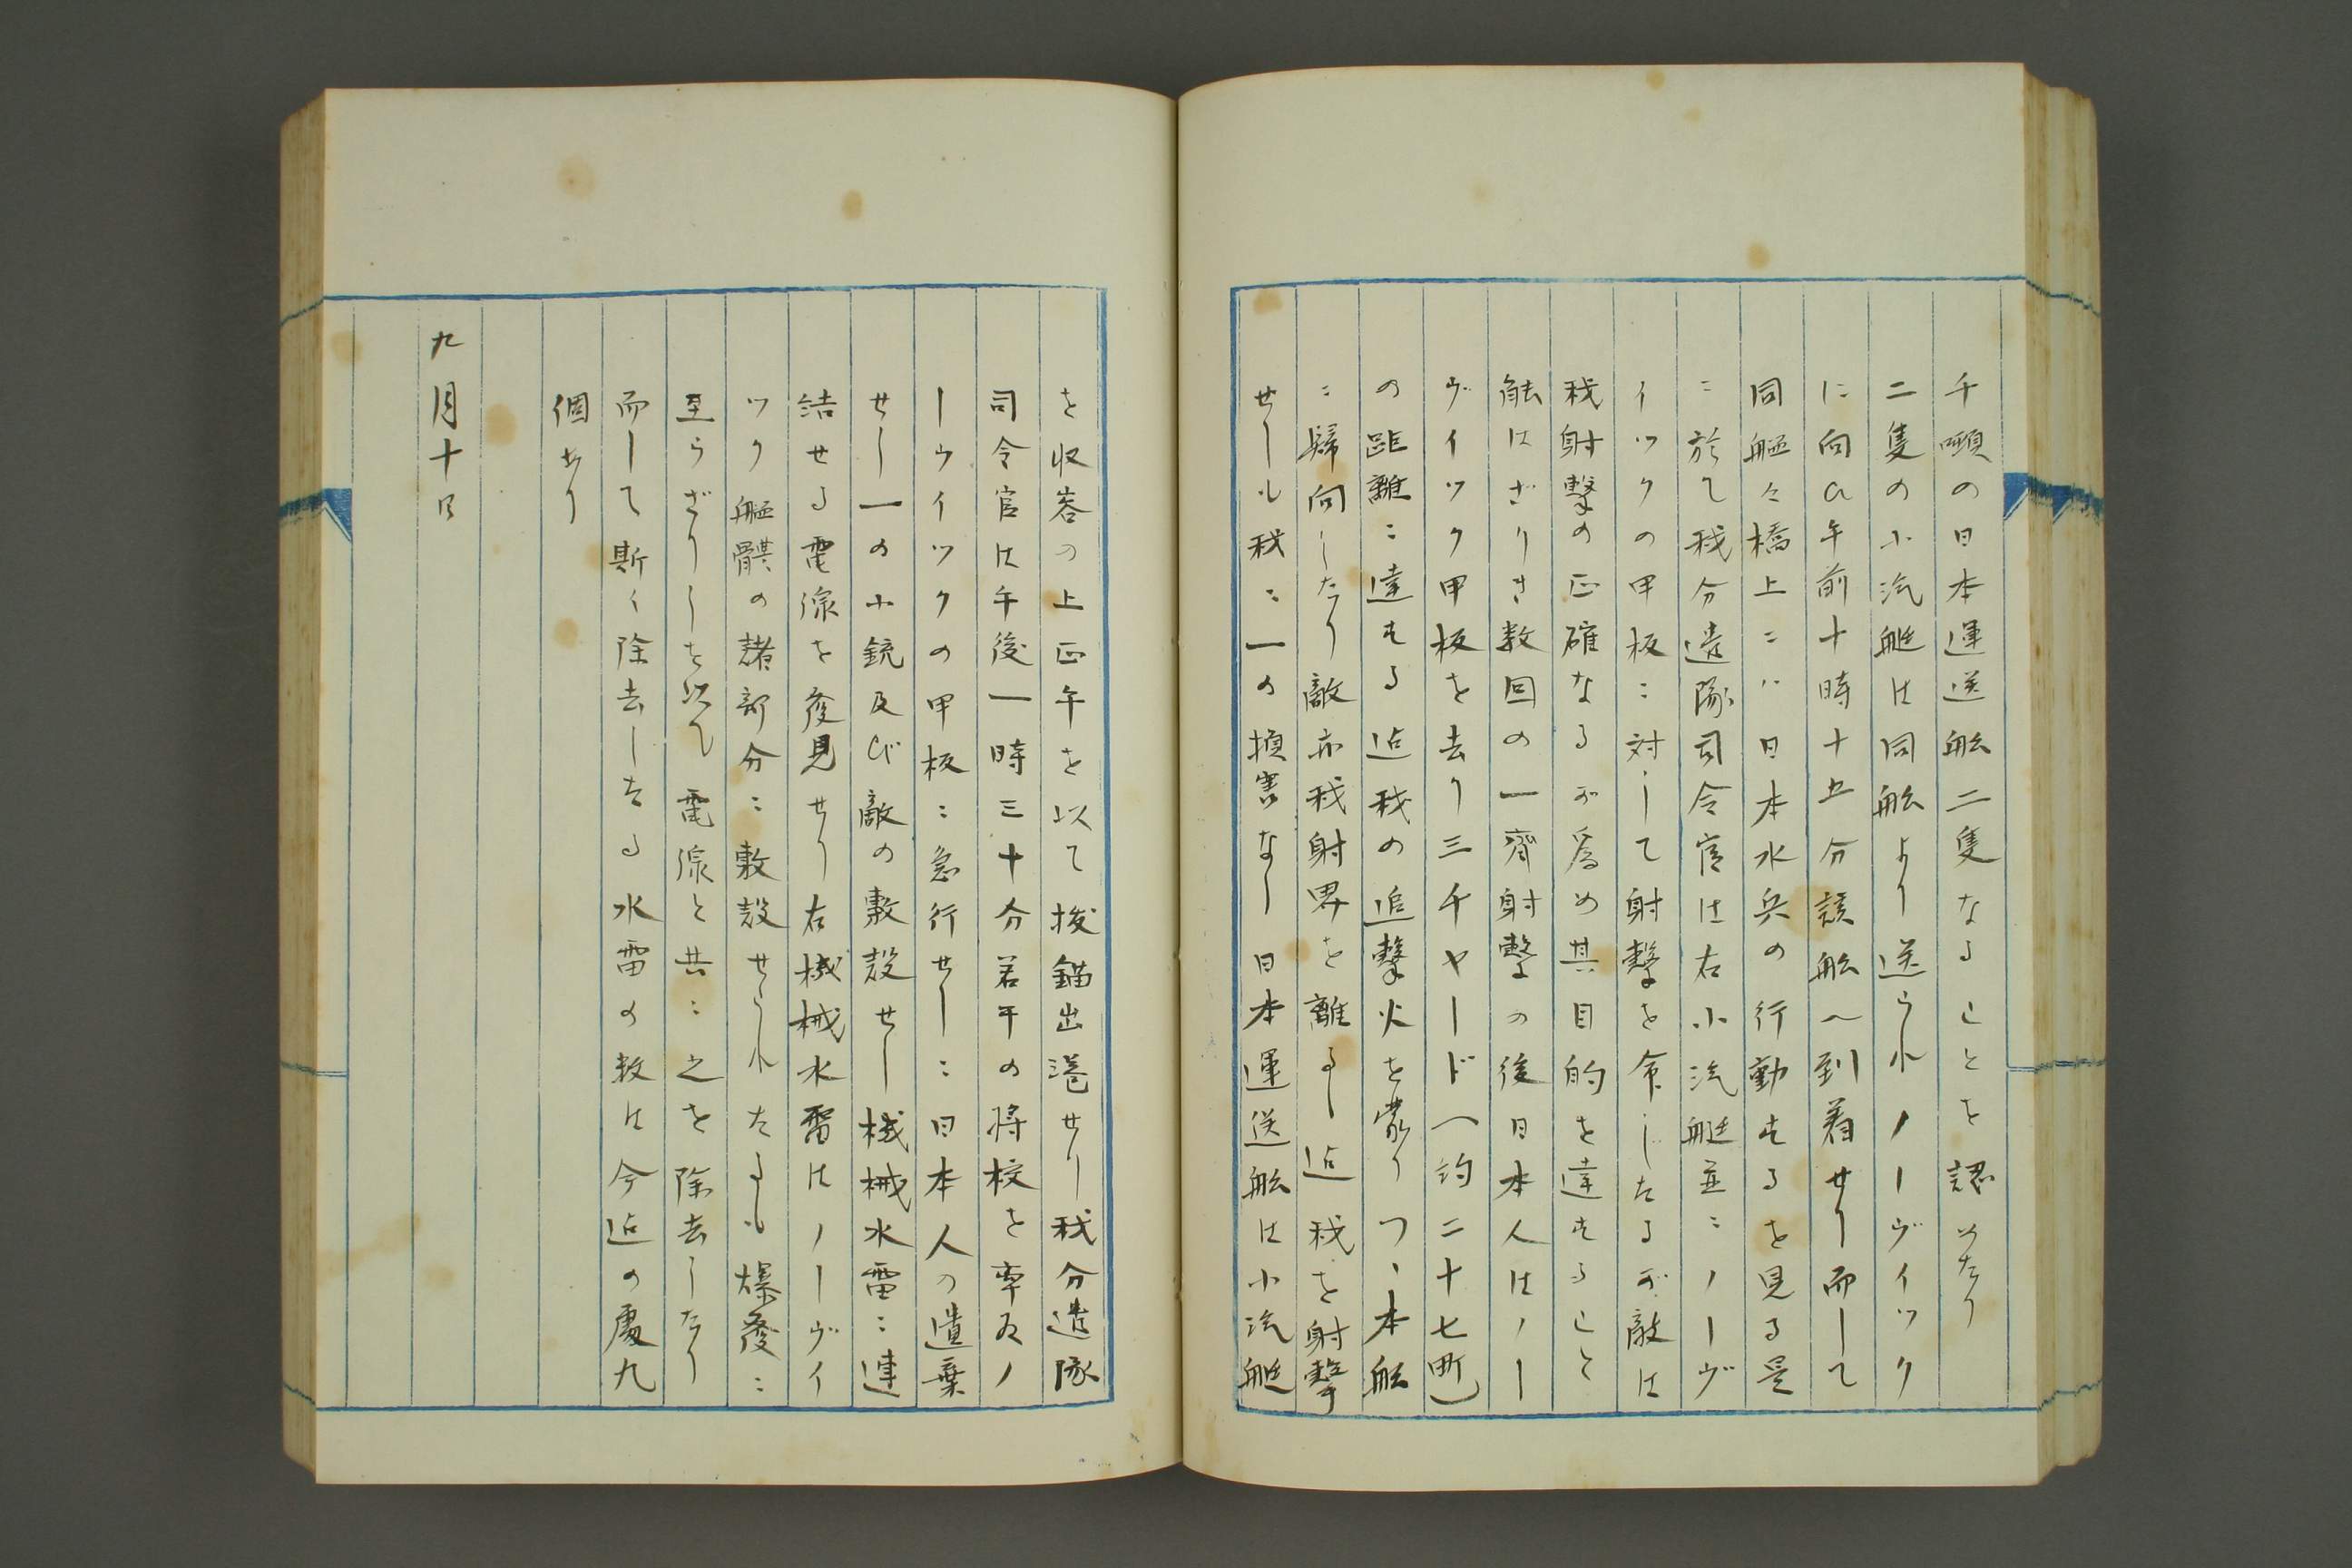 千噸の日本運送船二隻なることを認めたり
二隻の小汽艇は同船より送られノーヴイツク
に向ひ午前十時十五分該船へ到着せり而して
同艦々橋上ニハ日本水兵の行動するを見る是
ニ於て我分遣隊司令官は右小汽艇並ニノーヴ
イツクの甲板ニ対して射撃を命じたるが敵は
我射撃の正確なるが為め其目的を達すること
能はざりき数回の一齊射撃の後日本人はノー
ヴイツク甲板を去り三千ヤード(約二十七町)
の距離ニ達する迄我の追撃火を蒙りつゝ本船
ニ歸向したり敵亦我射界を離るゝ迄我を射撃
せしも我ニ一の損害なし日本運送船は小汽艇
を収容の上正午を以て抜錨出港せり我分遣隊
司令官は午後一時三十分若干の将校を率ゐノ
ーヴイツクの甲板ニ急行せしニ日本人の遺棄
せし一の小銃及び敵の敷設せし機械水雷ニ連
結せる電線を發見せり右機械水雷はノーヴイ
ツク艦體の諸部分ニ敷設せられたるも爆發ニ
至らざりしを以て電線と共ニ之を除去したり
而して斯く除去したる水雷の数は今迄の處九
個あり
九月十日